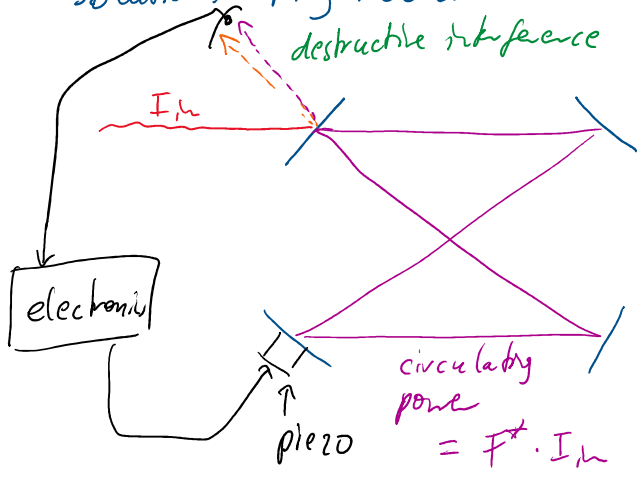 destructive interference
I_in
electronics
piezo
circulating
power
= F* · I_in